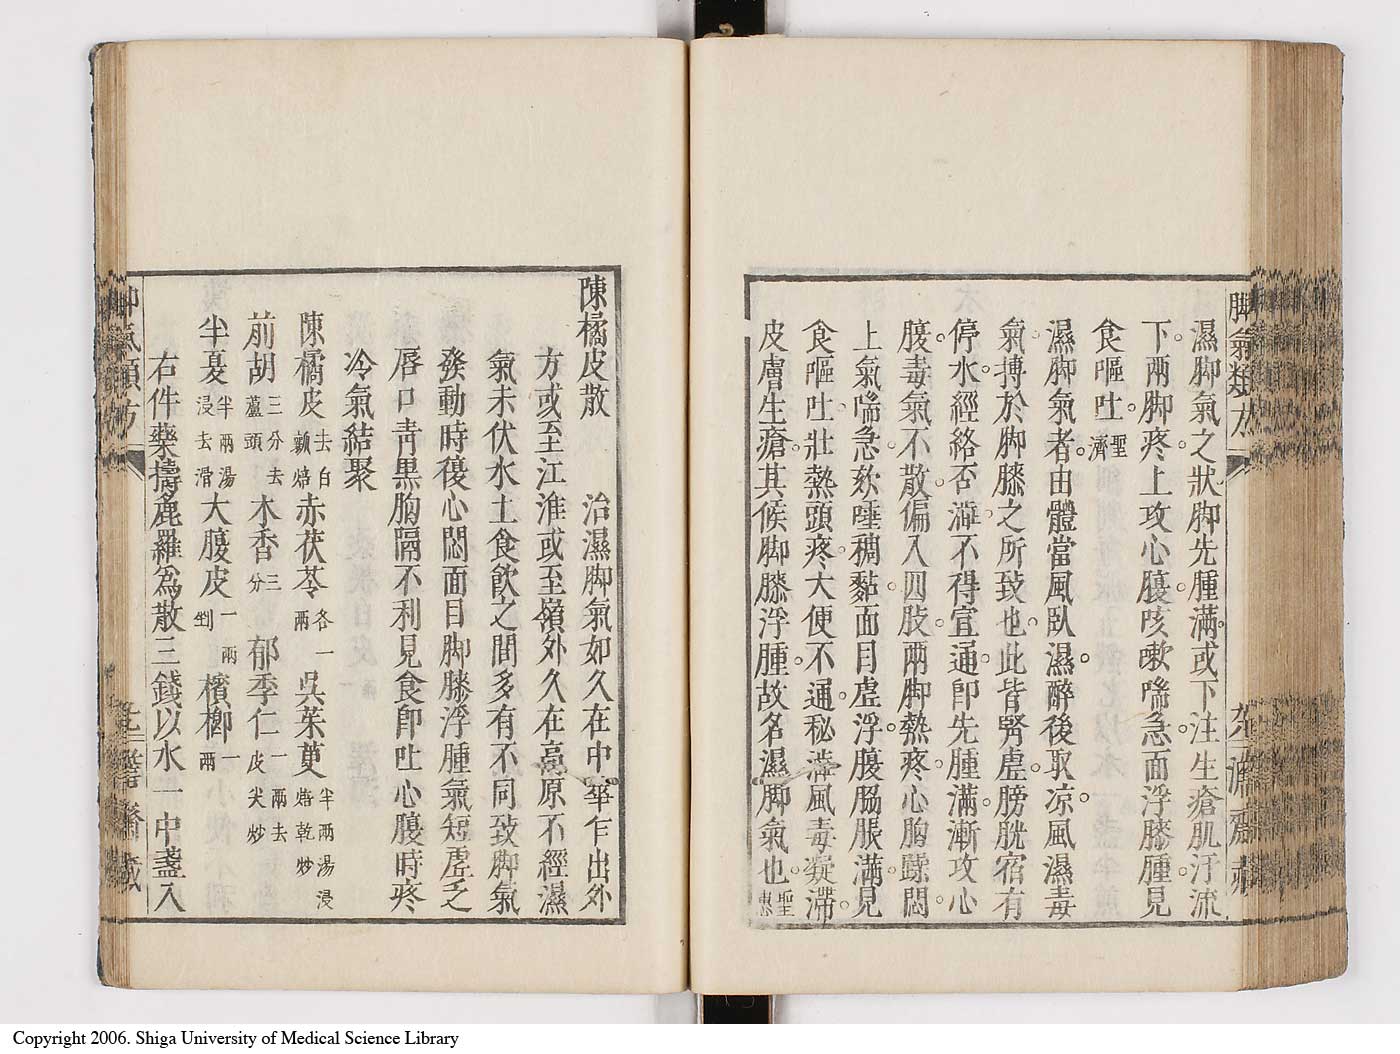 脚氣類方
濕脚氣之狀脚先腫滿或下注生瘡肌汙流
下兩脚疼上攻心腹咳嗽喘急面浮膝腫見
食嘔吐聖濟
濕脚氣者由體當風臥濕醉後取凉風濕毒
氣搏於脚膝之所致也此皆腎虛膀胱宿有
停水經絡否澁不得宣通卽先腫滿漸攻心
腹毒氣不散偏入四肢兩脚熱疼心胸蹂悶
上氣喘急欬唾稠黏面目虛浮腹脇脹滿見
食嘔吐壯熱頭疼大便不通秘澁風毒凝滯
皮膚生瘡其候脚膝浮腫故名濕脚氣也聖惠
陳橘皮散 治濕脚氣如久在中華乍出外
方或至江淮或至嶺外久在高原不經濕
氣未伏水土食飮之間多有不同致脚氣
發動時復心悶面目脚膝浮腫氣短虛乏
唇口靑黑胸隔不利見食卽吐心腹時疼
冷氣結聚
陳橘皮去白瓤焙赤茯苓各一兩吳茱萸半兩湯浸焙乾炒
前胡三分去蘆頭木香三分郁李仁一兩去皮尖炒
半夏半兩湯浸去滑大腹皮一兩剉檳榔一兩
右件藥擣麁羅爲散三錢以水一中盞入
脚氣類方